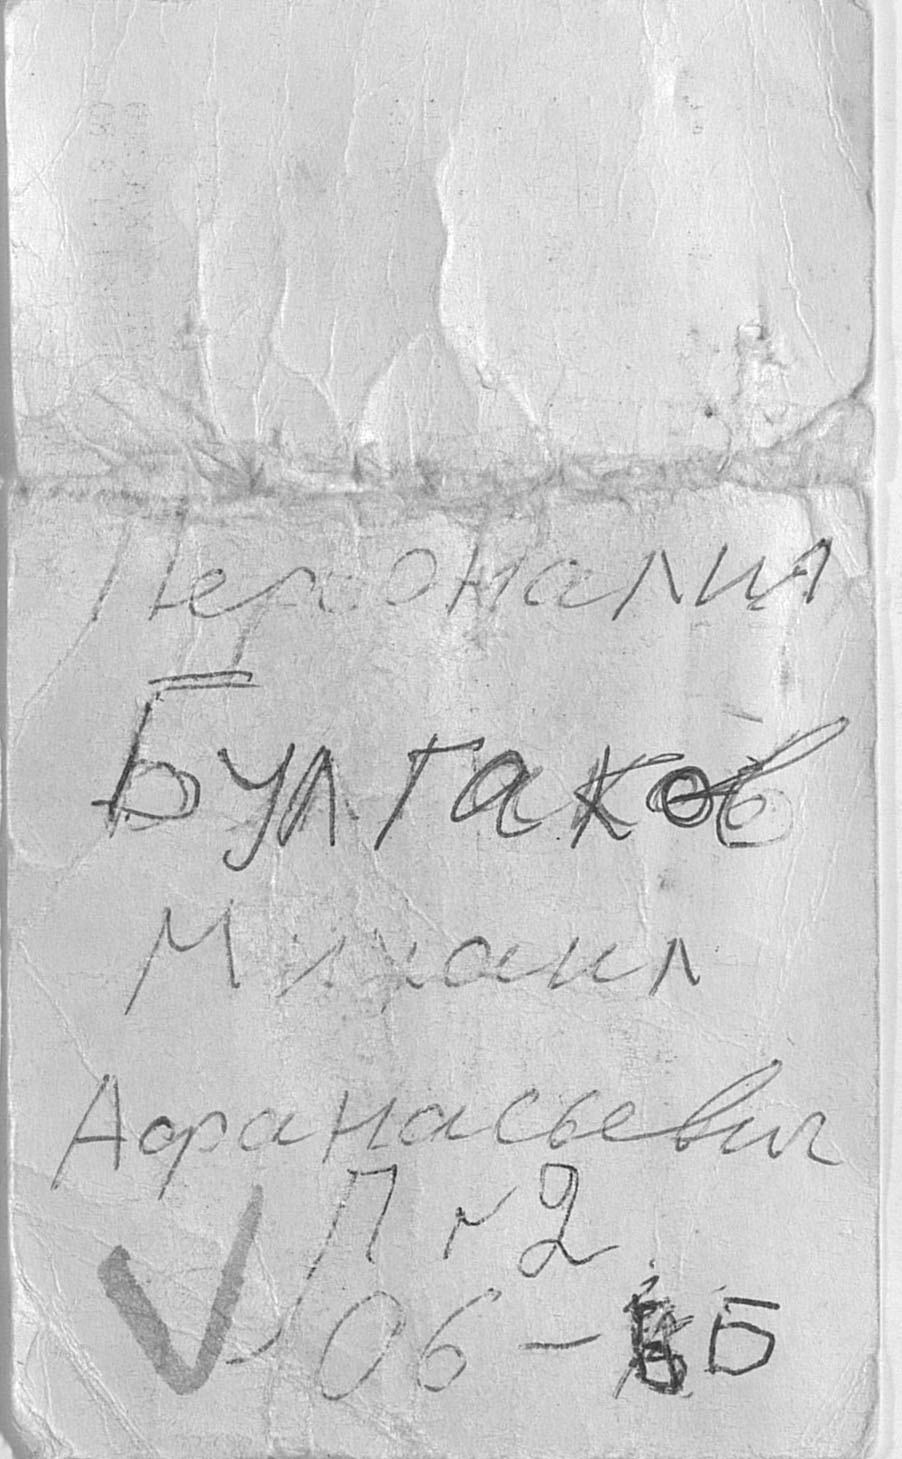 Персоналии
Булгаков
Михаил
Афанасьевич
П № 2
06 - Б